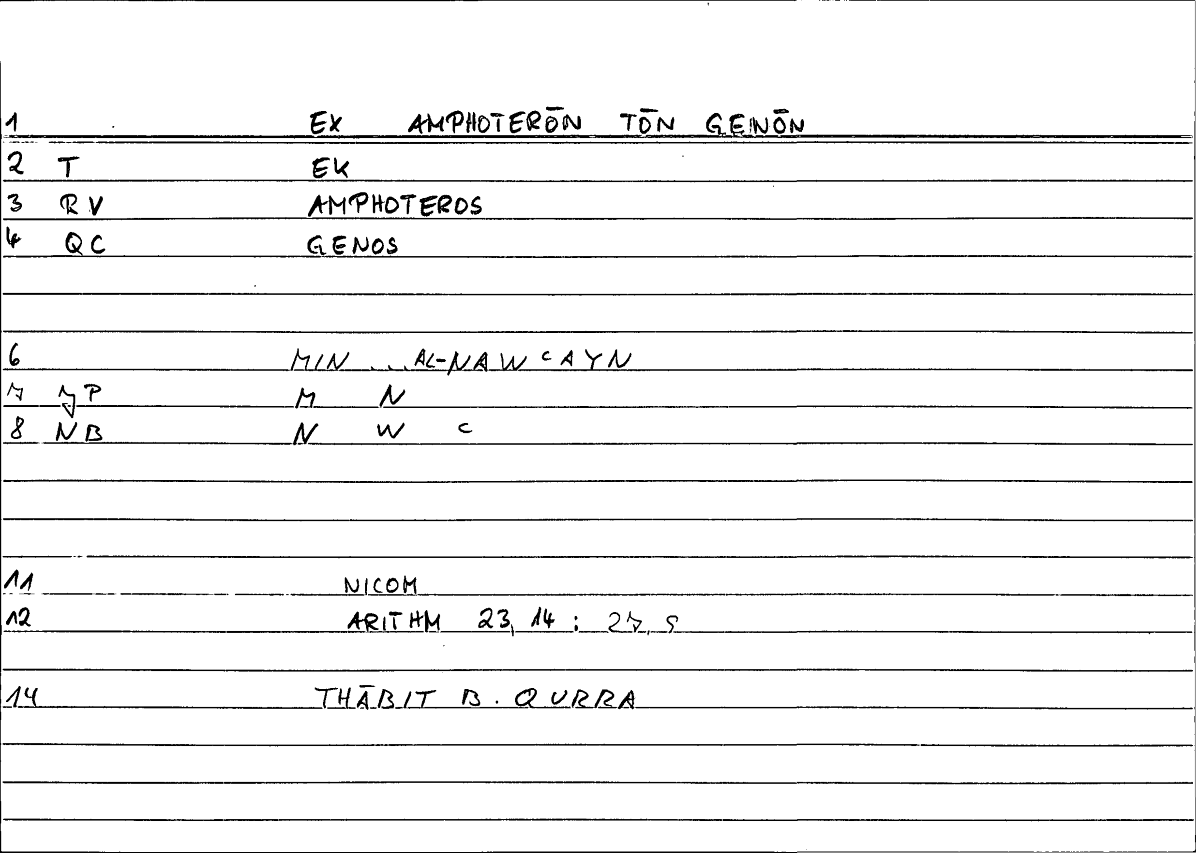 1 EX AMPHOTERŌN TŌN GENŌN
2 T EK
3 RV AMPHOTEROS
4 QC GENOS
6 MIN ... AL-NAWʿAYN
7 P M N
8 NB N W ʿ
11 NICOM
12 ARITHM 23, 14 ;
14 THĀBIT B. QURRA